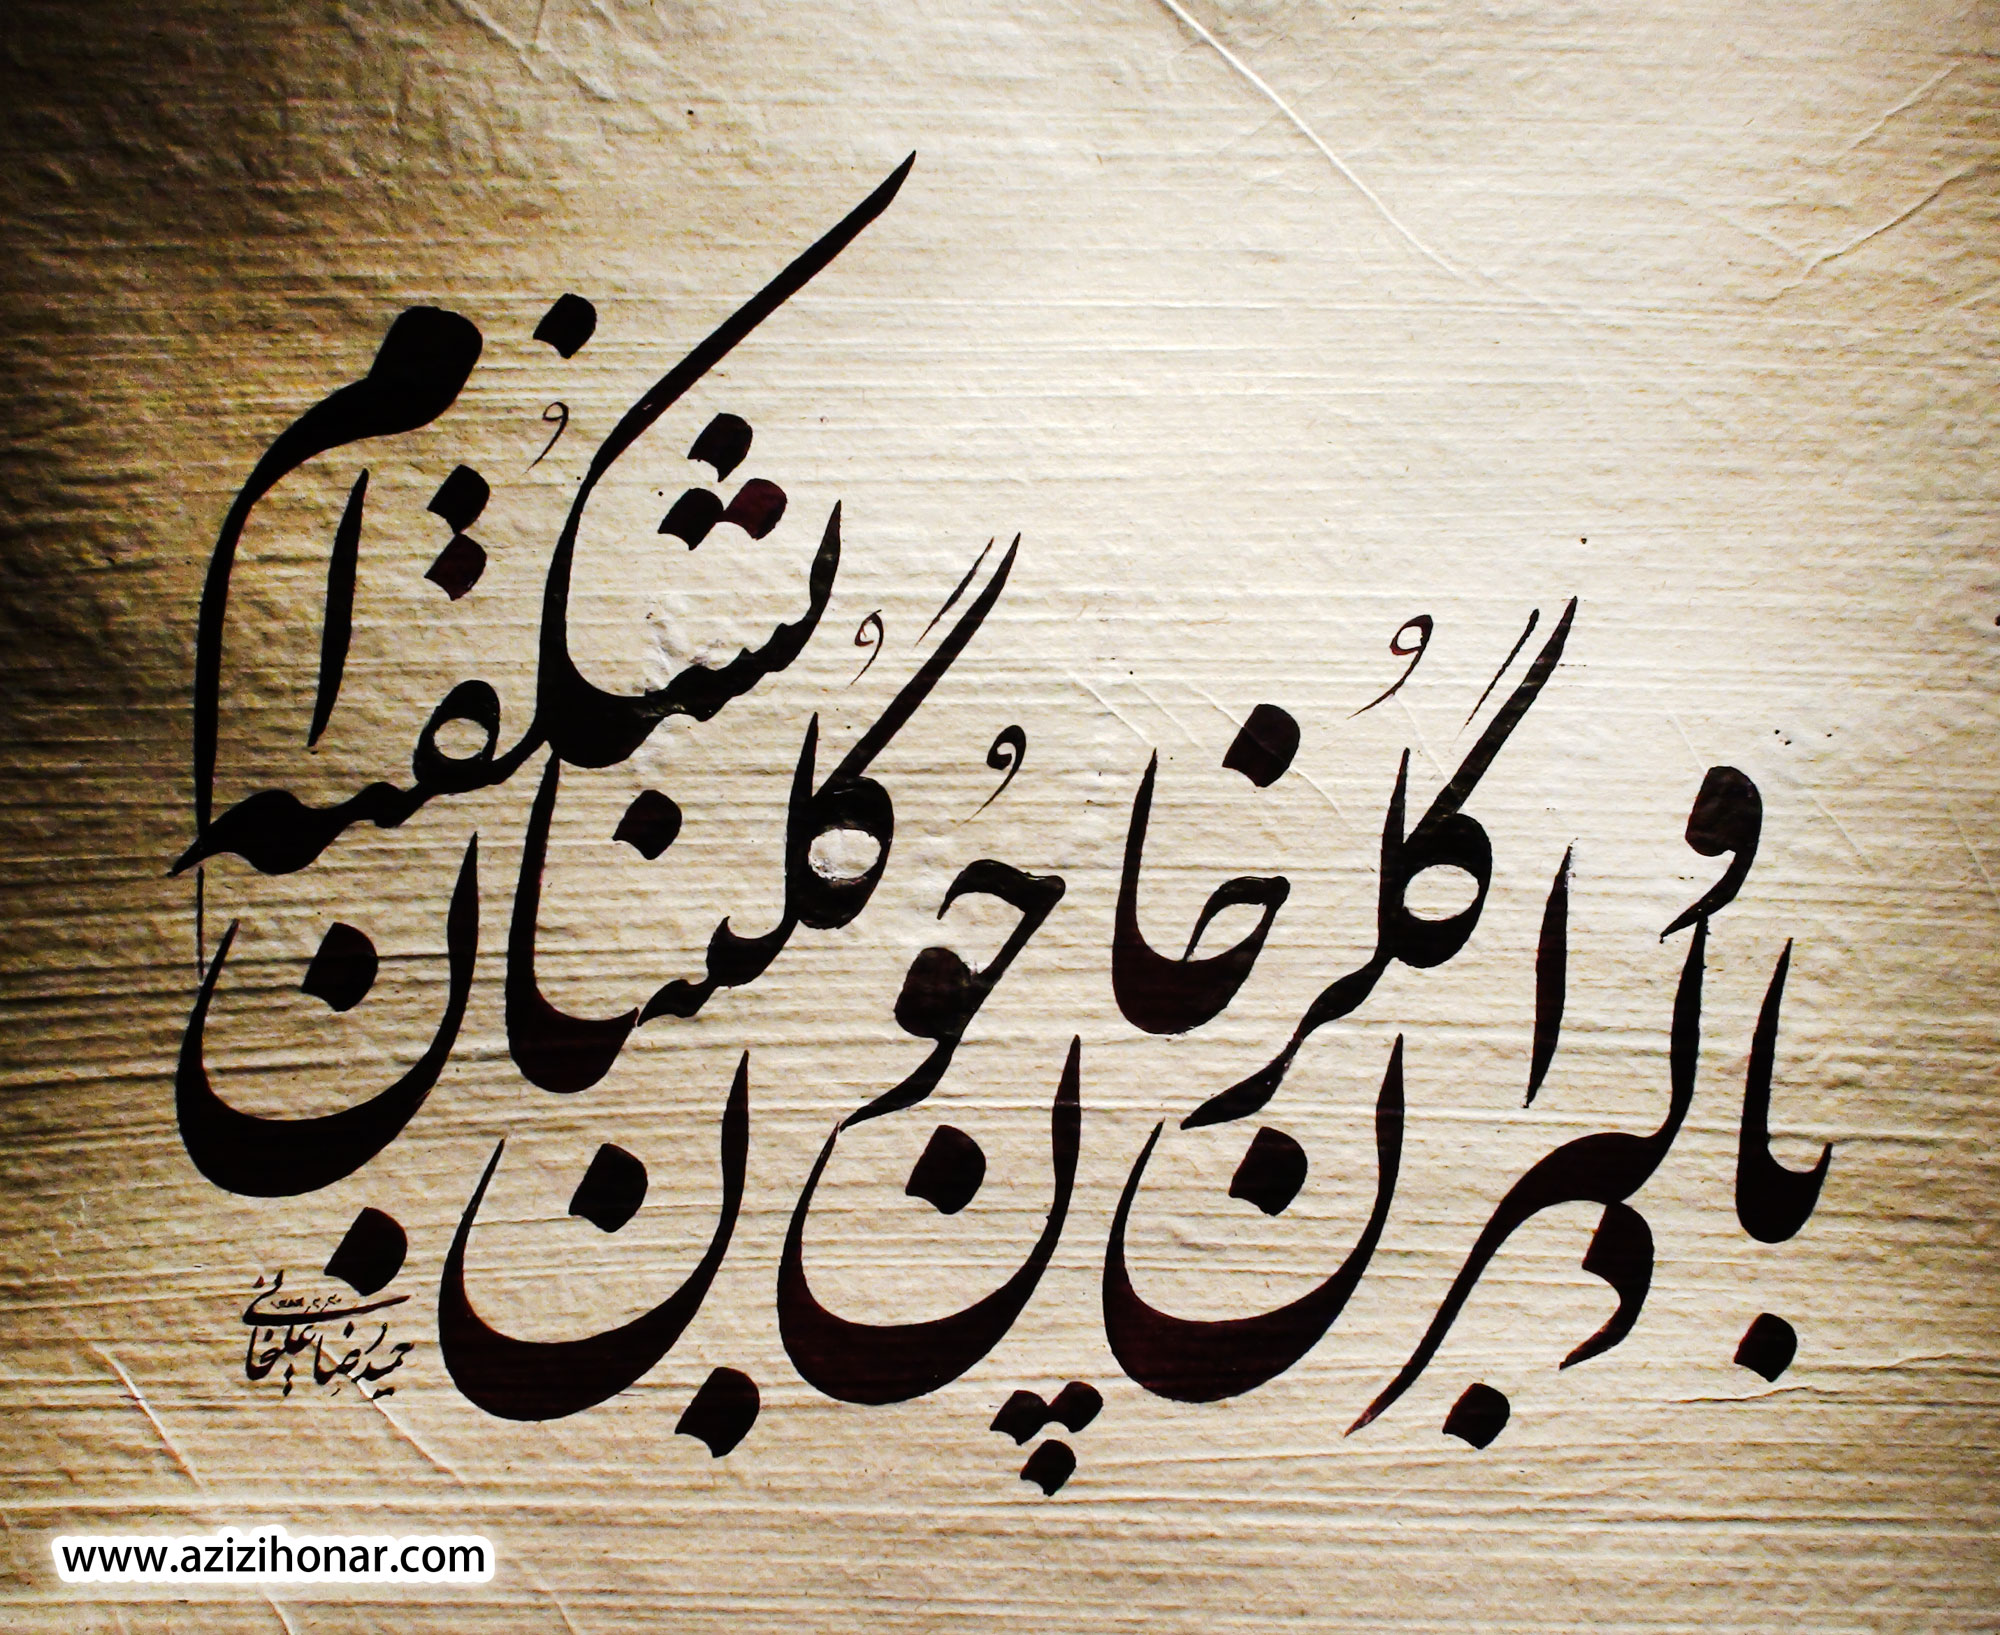 با دلبران و گلرخان چون گلبنان بشکفته‌ام
حمیدرضا علیخانی
www.azizihonar.com